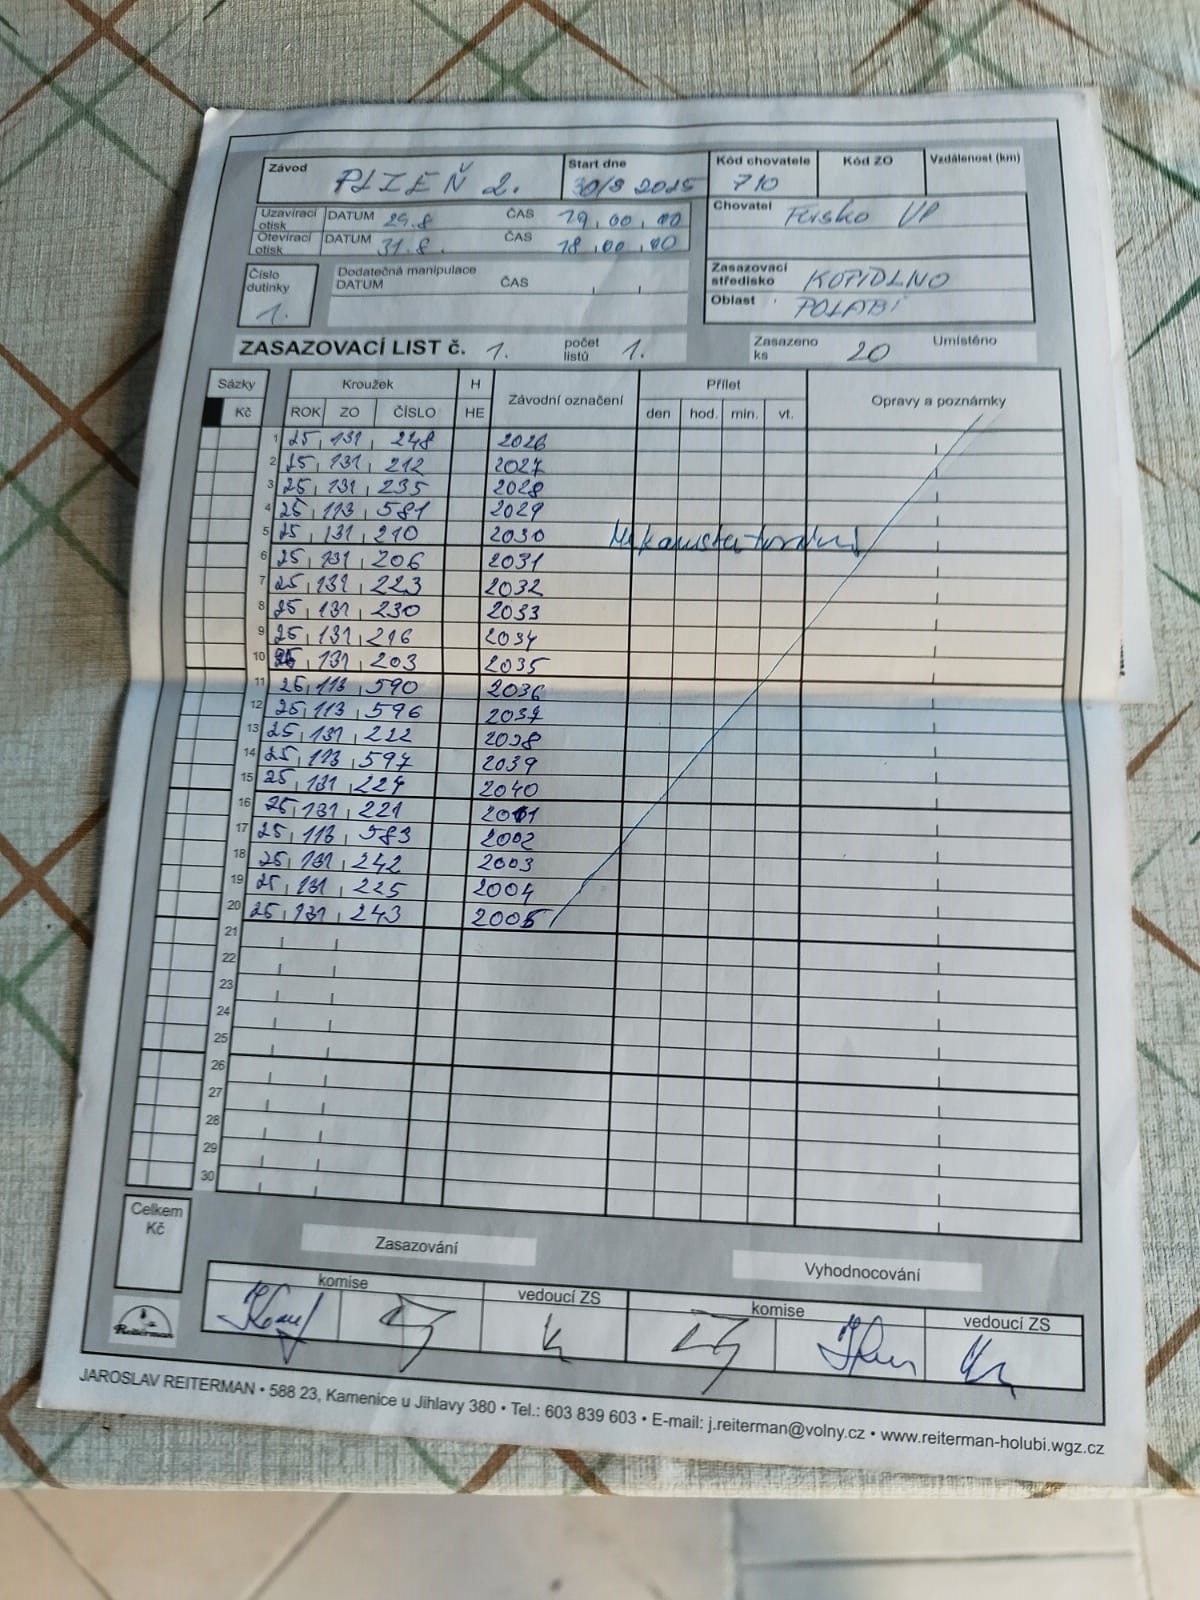 Závod PLZEŇ 2. Start dne 30/8 2025 Kód chovatele 710 Kód ZO Vzdálenost (km)
Uzavírací otisk DATUM 29.8 ČAS 19,00,00
Otevírací otisk DATUM 31.8. ČAS 18,00,00
Chovatel VP
Číslo dutinky 1. Dodatečná manipulace DATUM ČAS
Zasazovací středisko KOPIDLNO
Oblast POLABÍ
ZASAZOVACÍ LIST č. 1. počet listů 1. Zasazeno ks 20 Umístěno
Sázky Kroužek H Závodní označení Přílet Opravy a poznámky
Kč ROK ZO ČÍSLO HE den hod. min. vt.
1 25 131 248 2026
2 25 131 212 2027
3 25 131 235 2028
4 25 113 581 2029
5 25 131 210 2030
6 25 131 206 2031
7 25 131 223 2032
8 25 131 230 2033
9 25 131 216 2034
10 25 131 203 2035
11 25 113 590 2036
12 25 113 596 2037
13 25 131 222 2038
14 25 113 597 2039
15 25 131 224 2040
16 25 131 221 2001
17 25 113 583 2002
18 25 131 242 2003
19 25 131 225 2004
20 25 131 243 2005
21
22
23
24
25
26
27
28
29
30
Celkem Kč
Zasazování Vyhodnocování
komise vedoucí ZS komise vedoucí ZS
Reiterman
JAROSLAV REITERMAN • 588 23, Kamenice u Jihlavy 380 • Tel.: 603 839 603 • E-mail: j.reiterman@volny.cz • www.reiterman-holubi.wgz.cz